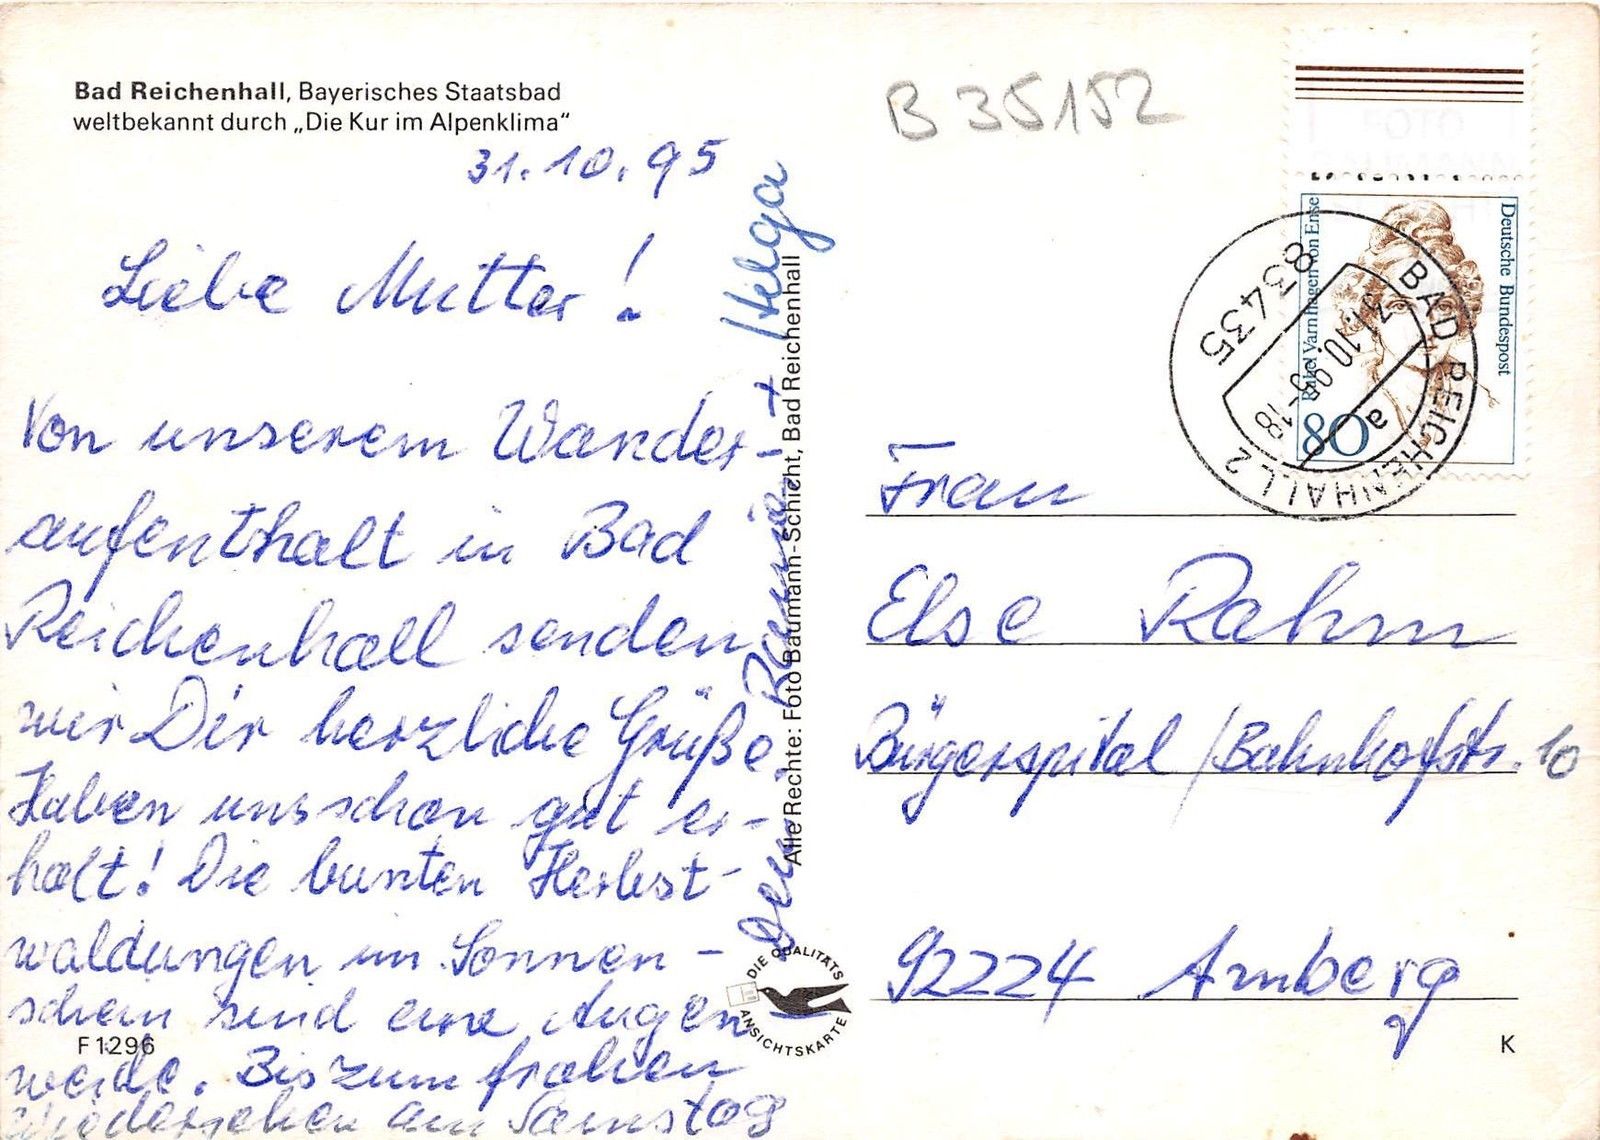 Bad Reichenhall, Bayerisches Staatsbad
weltbekannt durch „Die Kur im Alpenklima“
31.10.95
Liebe Mutter!
Von unserem Wander-
aufenthalt in Bad
Reichenhall senden
wir Dir herzliche Grüße.
Haben uns schon gut er-
holt! Die bunten Herbst-
waldungen im Sonnen-
schein sind eine Augen
weide. Bis zum frohen
Wiedersehen am Samstag
Dein + Helga
F 1296
Alle Rechte: Foto Baumann-Schicht, Bad Reichenhall
DIE QUALITÄTS
ANSICHTSKARTE
B 35152
Deutsche Bundespost
Rahel Varnhagen von Ense
80
83435
BAD REICHENHALL 2
31.10.95-18
a
Frau
Else Rahm
Bürgerspital / Bahnhofstr. 10
92224 Amberg
K